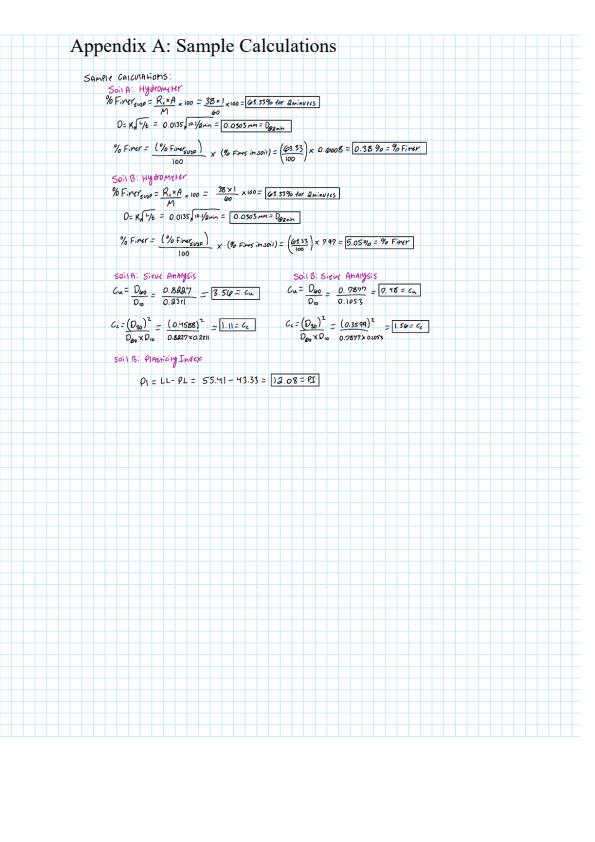 Appendix A: Sample Calculations
SAMPLE CALCULATIONS:
Soil A: Hydrometer
% Finer_susp = R₁×A / M × 100 = 38×1 / 60 × 100 = 63.33% for 2minutes
D = K√L/t = 0.0135 √10.1/2min = 0.0303 mm = D@2min
% Finer = (% Finer_susp) / 100 × (% Fines in soil) = (63.33 / 100) × 0.6008 = 0.38% = % Finer
Soil B: Hydrometer
% Finer_susp = R₁×A / M × 100 = 38×1 / 60 × 100 = 63.33% for 2minutes
D = K√L/t = 0.0135 √10.1/2min = 0.0303 mm = D@2min
% Finer = (% Finer_susp) / 100 × (% Fines in soil) = (63.33 / 100) × 7.97 = 5.05% = % Finer
Soil A: Sieve Analysis
Cu = D60 / D10 = 0.8227 / 0.2311 = 3.56 = Cu
Cc = (D30)² / D60 × D10 = (0.4588)² / 0.8227×0.2311 = 1.11 = Cc
Soil B: Sieve Analysis
Cu = D60 / D10 = 0.7877 / 0.1053 = 7.48 = Cu
Cc = (D30)² / D60 × D10 = (0.3599)² / 0.7877×0.1053 = 1.56 = Cc
Soil B: Plasticity Index
PI = LL - PL = 55.41 - 43.33 = 12.08 = PI